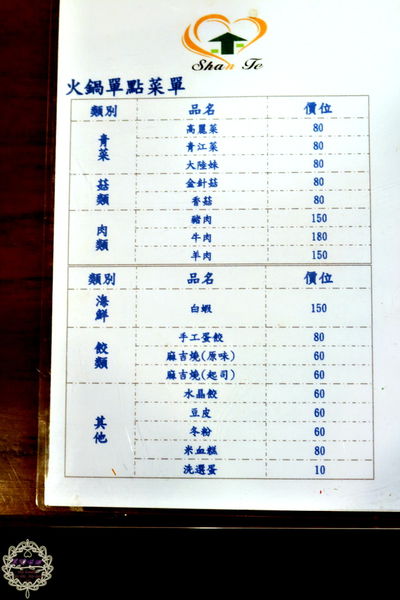 Shan Te
火鍋單點菜單
類別 品名 價位
青菜 高麗菜 80
青江菜 80
大陸妹 80
菇類 金針菇 80
香菇 80
肉類 豬肉 150
牛肉 180
羊肉 150
類別 品名 價位
海鮮 白蝦 150
餃類 手工蛋餃 80
麻吉燒(原味) 60
麻吉燒(起司) 60
其他 水晶餃 60
豆皮 60
冬粉 60
米血糕 80
洗選蛋 10